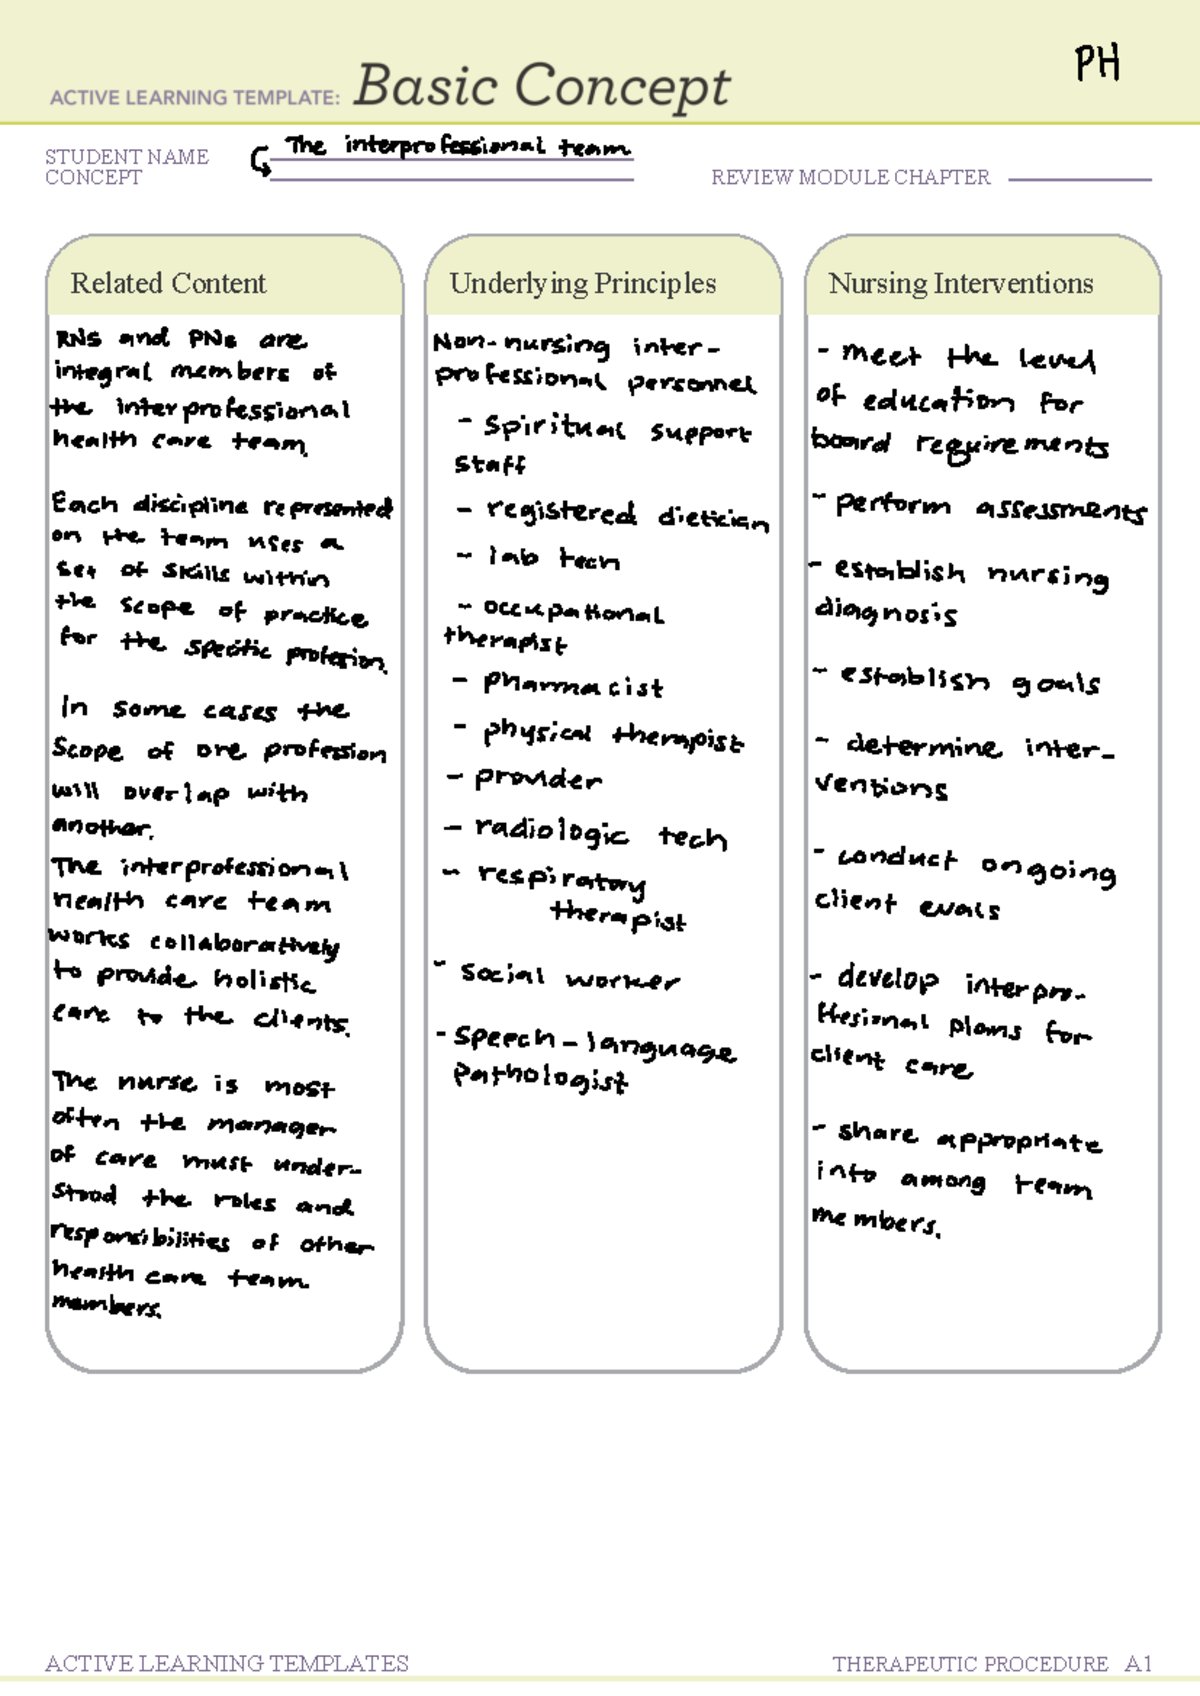 PH
ACTIVE LEARNING TEMPLATE: Basic Concept
The interprofessional team
STUDENT NAME
CONCEPT
REVIEW MODULE CHAPTER
Related Content
RNs and PNs are
integral members of
the interprofessional
health care team.
Each discipline represented
on the team uses a
set of skills within
the scope of practice
for the specific profesion.
In some cases the
scope of one profession
will overlap with
another.
The interprofessional
health care team
works collaboratively
to provide holistic
care to the clients.
The nurse is most
often the manager
of care must under-
stood the roles and
responsibilities of other
health care team
members.
Underlying Principles
Non-nursing inter-
professional personnel
- spiritual support
staff
- registered dietician
- lab tech
- occupational
therapist
- pharmacist
- physical therapist
- provider
- radiologic tech
- respiratory
therapist
- social worker
- speech-language
pathologist
Nursing Interventions
- meet the level
of education for
board requirements
- perform assessments
- establish nursing
diagnosis
- establish goals
- determine inter-
ventions
- conduct ongoing
client evals
- develop interpro-
ffesional plans for
client care
- share appropriate
info among team
members.
ACTIVE LEARNING TEMPLATES
THERAPEUTIC PROCEDURE A1